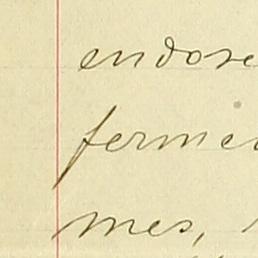 endose
fermen
mes,